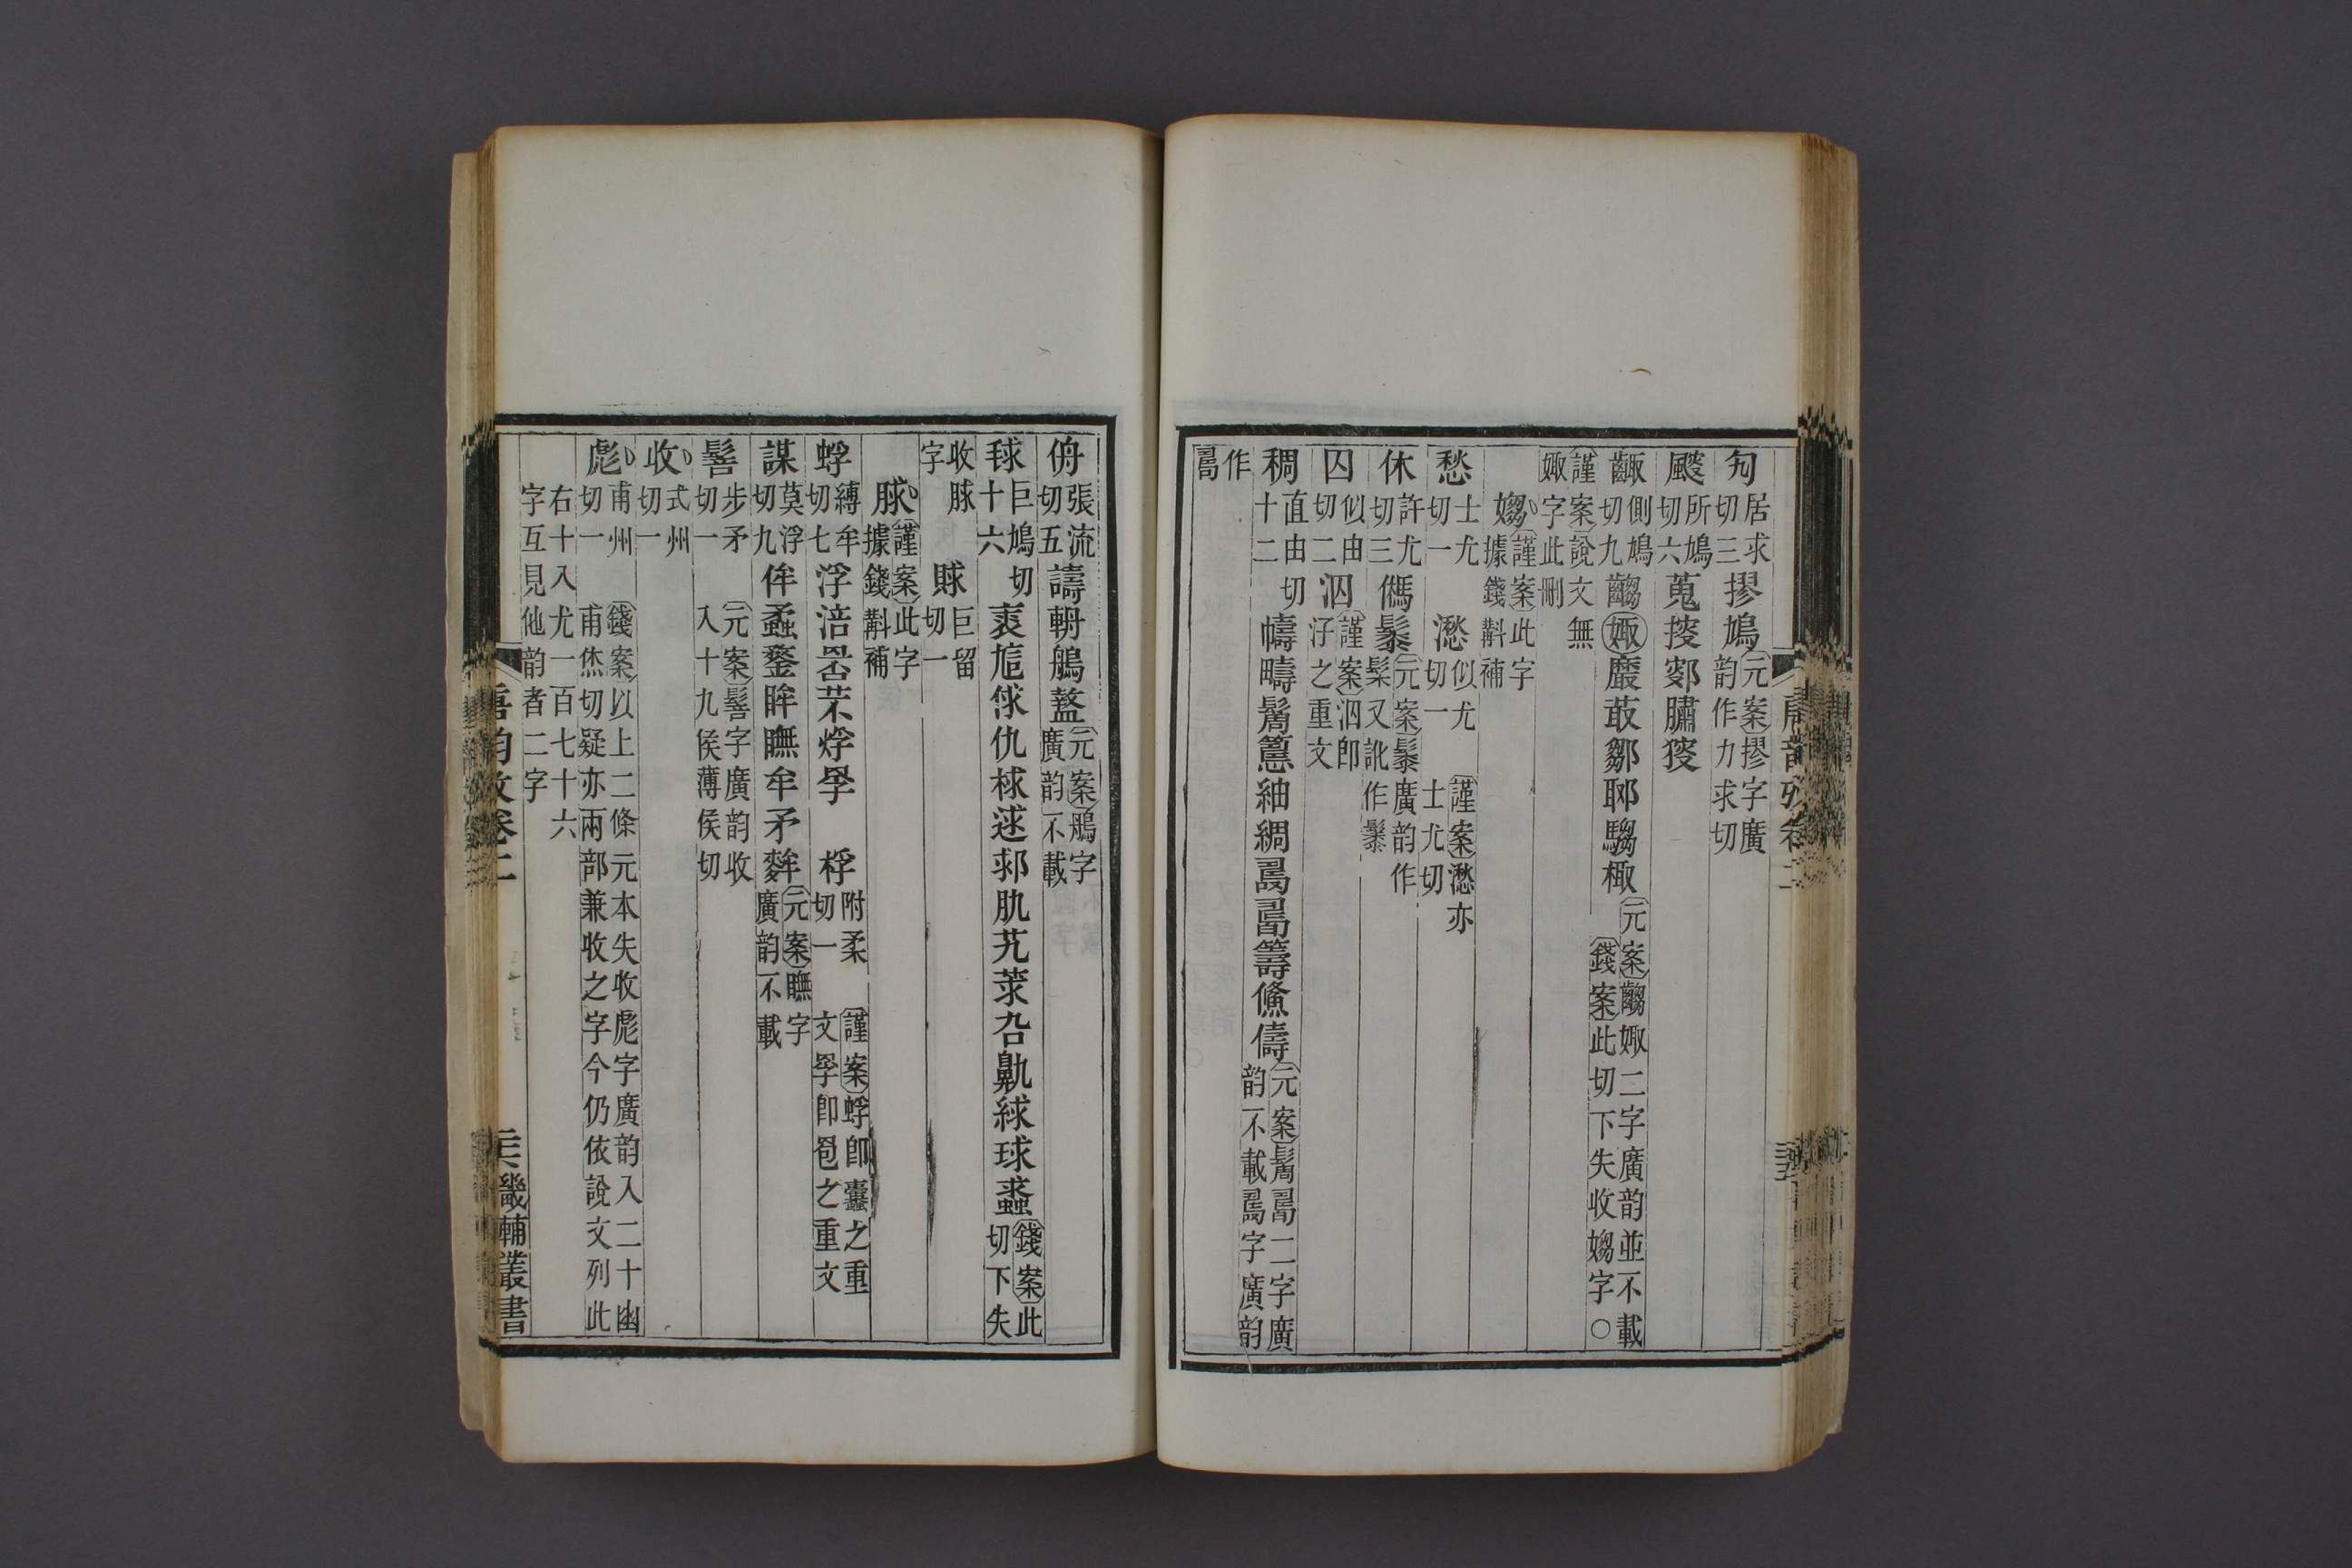 勼居求切三摎鳩元案摎字廣韵作力求切
颼所鳩切六蒐㨃鄋膄獀
齱側鳩切九齺娵廛菆鄒郰騶棷元案齺娵二字廣韵並不載錢案此切下失收媰字○
謹案說文無娵字此刪
媰謹案此字據錢斠補
愁士尤切一 懣似尤切一 謹案懣亦士尤切
休許尤切三㒻髹元案髹廣韵作髤又訛作髼
囚似由切二泅謹案泅卽汓之重文
稠直由切十二幬疇鬵籌紬綢𠷎籌鯈儔元案二字廣韵不載字廣韵
作
侜張流切五譸輈鵃盩元案鵃字廣韵不載
毬巨鳩切十六裘訄俅仇梂逑邾肍艽莍叴鼽絿球蛷錢案此切下失
收脙字 賕巨留切一
脙謹案此字據錢斠補
蜉縛牟切七浮涪罘芣烰罦 桴附柔切一 謹案蜉卽𧖻之重文罦卽䍖之重文
謀莫浮切九侔蟊鍪眸瞴牟矛麰元案瞴字廣韵不載
髻步矛切一 元案髻字廣韵收入十九侯薄侯切
收式州切一
彪甫州切一 錢案以上二條元本失收彪字廣韵入二十幽甫烋切疑亦兩部兼收之字今仍依說文列此
右十入尤一百七十六字互見他韵者二字
唐韵攷卷二
畿輔叢書